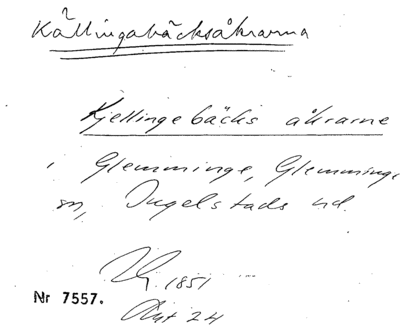 Källingabäcksåkrarna
Kjellingebäcks åkrarne
i Glemminge, Glemminge
sn, Ingelstads hd.
1851
Nr 7557.
Akt 24